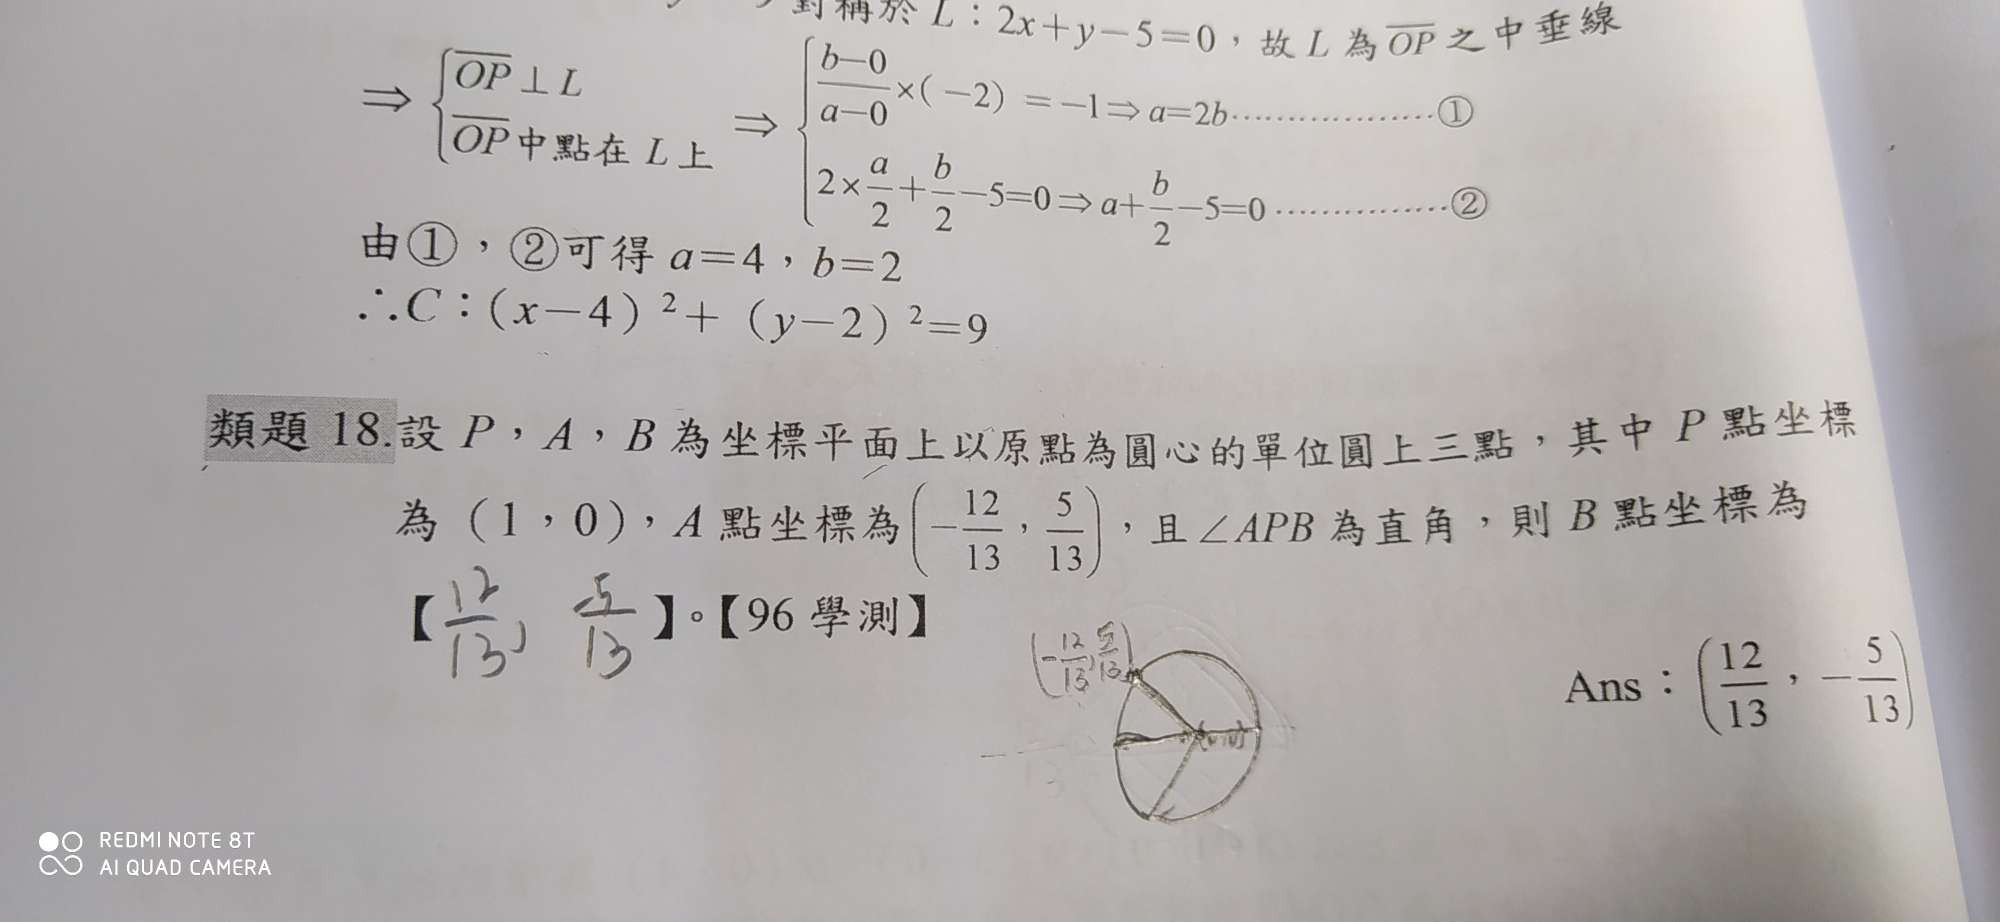 對稱於 L：2x+y−5=0，故 L 為 \overline{OP} 之中垂線
⇒ { \overline{OP} ⊥ L ⇒ { \frac{b−0}{a−0}×(−2) = −1⇒a=2b⋯⋯⋯⋯⋯⋯①
\overline{OP} 中點在 L 上 2×\frac{a}{2}+\frac{b}{2}−5=0⇒a+\frac{b}{2}−5=0⋯⋯⋯⋯⋯②
由①，②可得 a=4，b=2
∴C：(x−4)²+（y−2）²=9
類題 18.設 P，A，B 為坐標平面上以原點為圓心的單位圓上三點，其中 P 點坐標
為（1，0），A 點坐標為(−\frac{12}{13}，\frac{5}{13})，且∠APB 為直角，則 B 點坐標為
【\frac{12}{13}, \frac{-5}{13}】。【96 學測】
(-\frac{12}{13},\frac{5}{13})
Ans：(\frac{12}{13}，−\frac{5}{13})
REDMI NOTE 8T
AI QUAD CAMERA